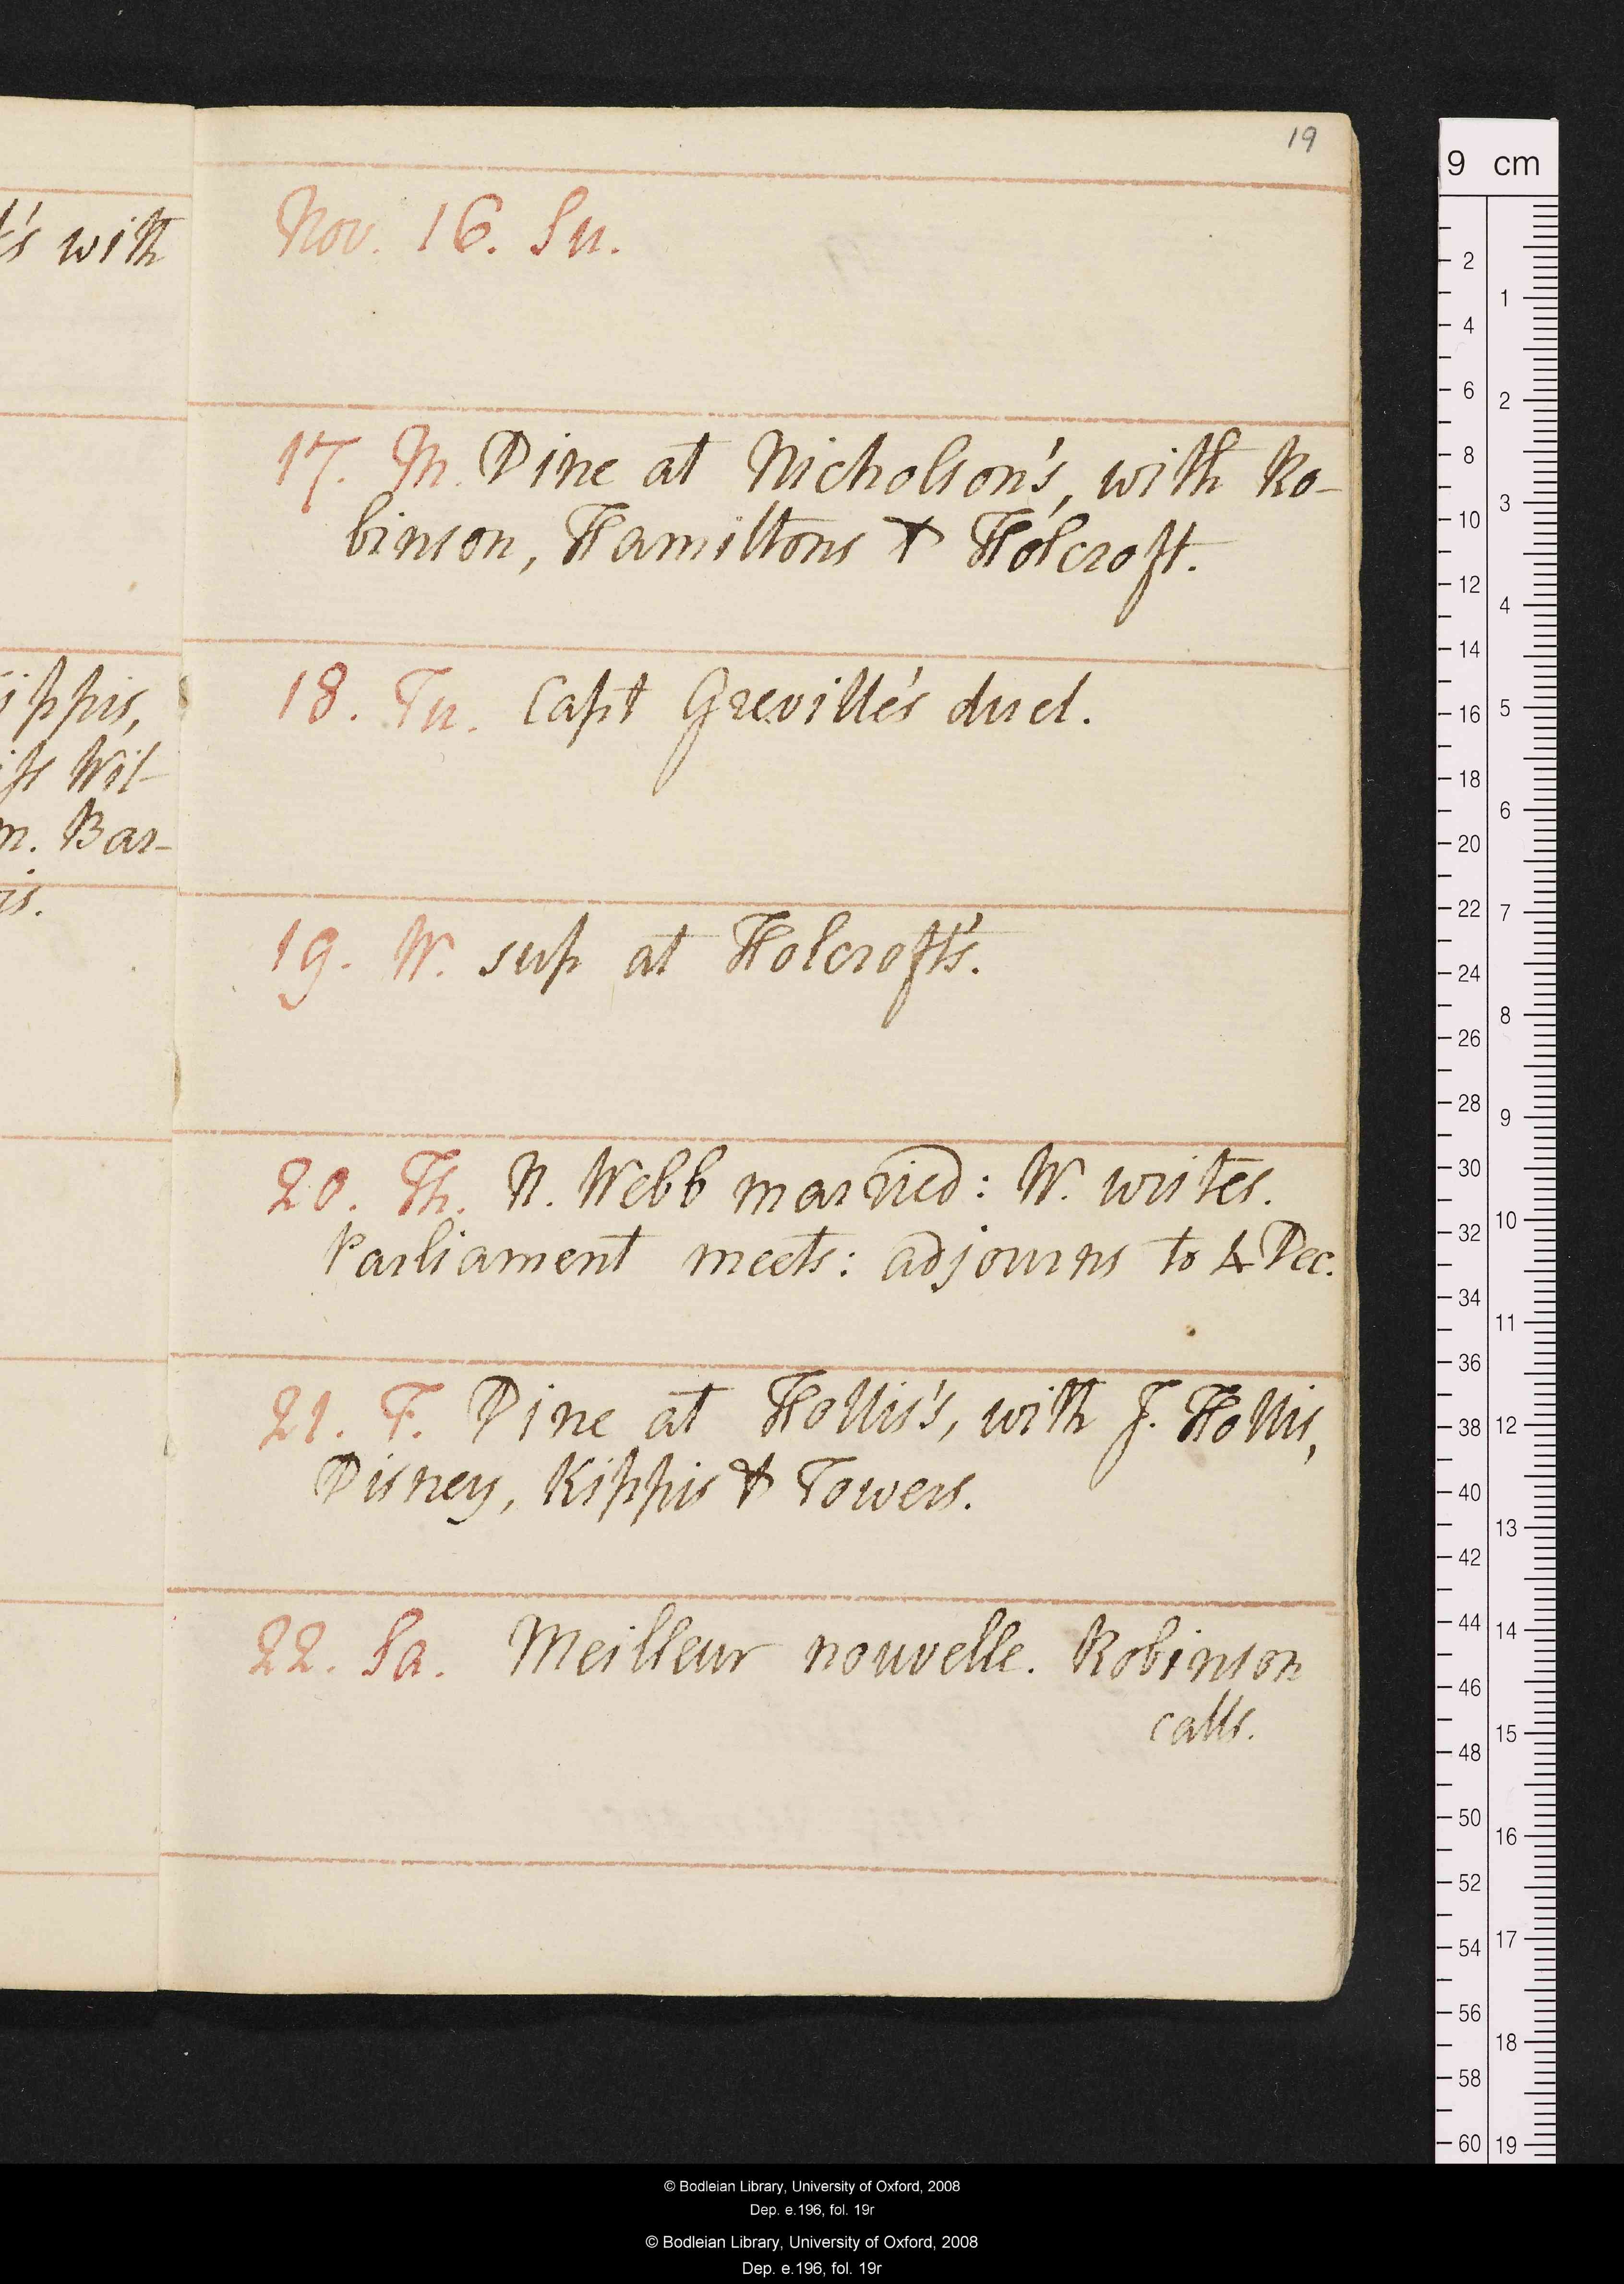 19
Nov. 16. Su.
17. M. Dine at Nicholson's, with Ro-
binson, Hamiltons & Holcroft.
18. Tu. Capt Greville's duel.
19. W. sup at Holcroft's.
20. Th. N. Webb married: W. writes.
Parliament meets: adjourns to 4 Dec.
21. F. Dine at Hollis's, with J. Hollis,
Disney, Kippis & Towers.
22. Sa. Meilleur nouvelle. Robinson
calls.
's with
ippis,
Wil-
m. Bar-
is.
9 cm
2
4
6
8
10
12
14
16
18
20
22
24
26
28
30
32
34
36
38
40
42
44
46
48
50
52
54
56
58
60
1
2
3
4
5
6
7
8
9
10
11
12
13
14
15
16
17
18
19
© Bodleian Library, University of Oxford, 2008
Dep. e.196, fol. 19r
© Bodleian Library, University of Oxford, 2008
Dep. e.196, fol. 19r